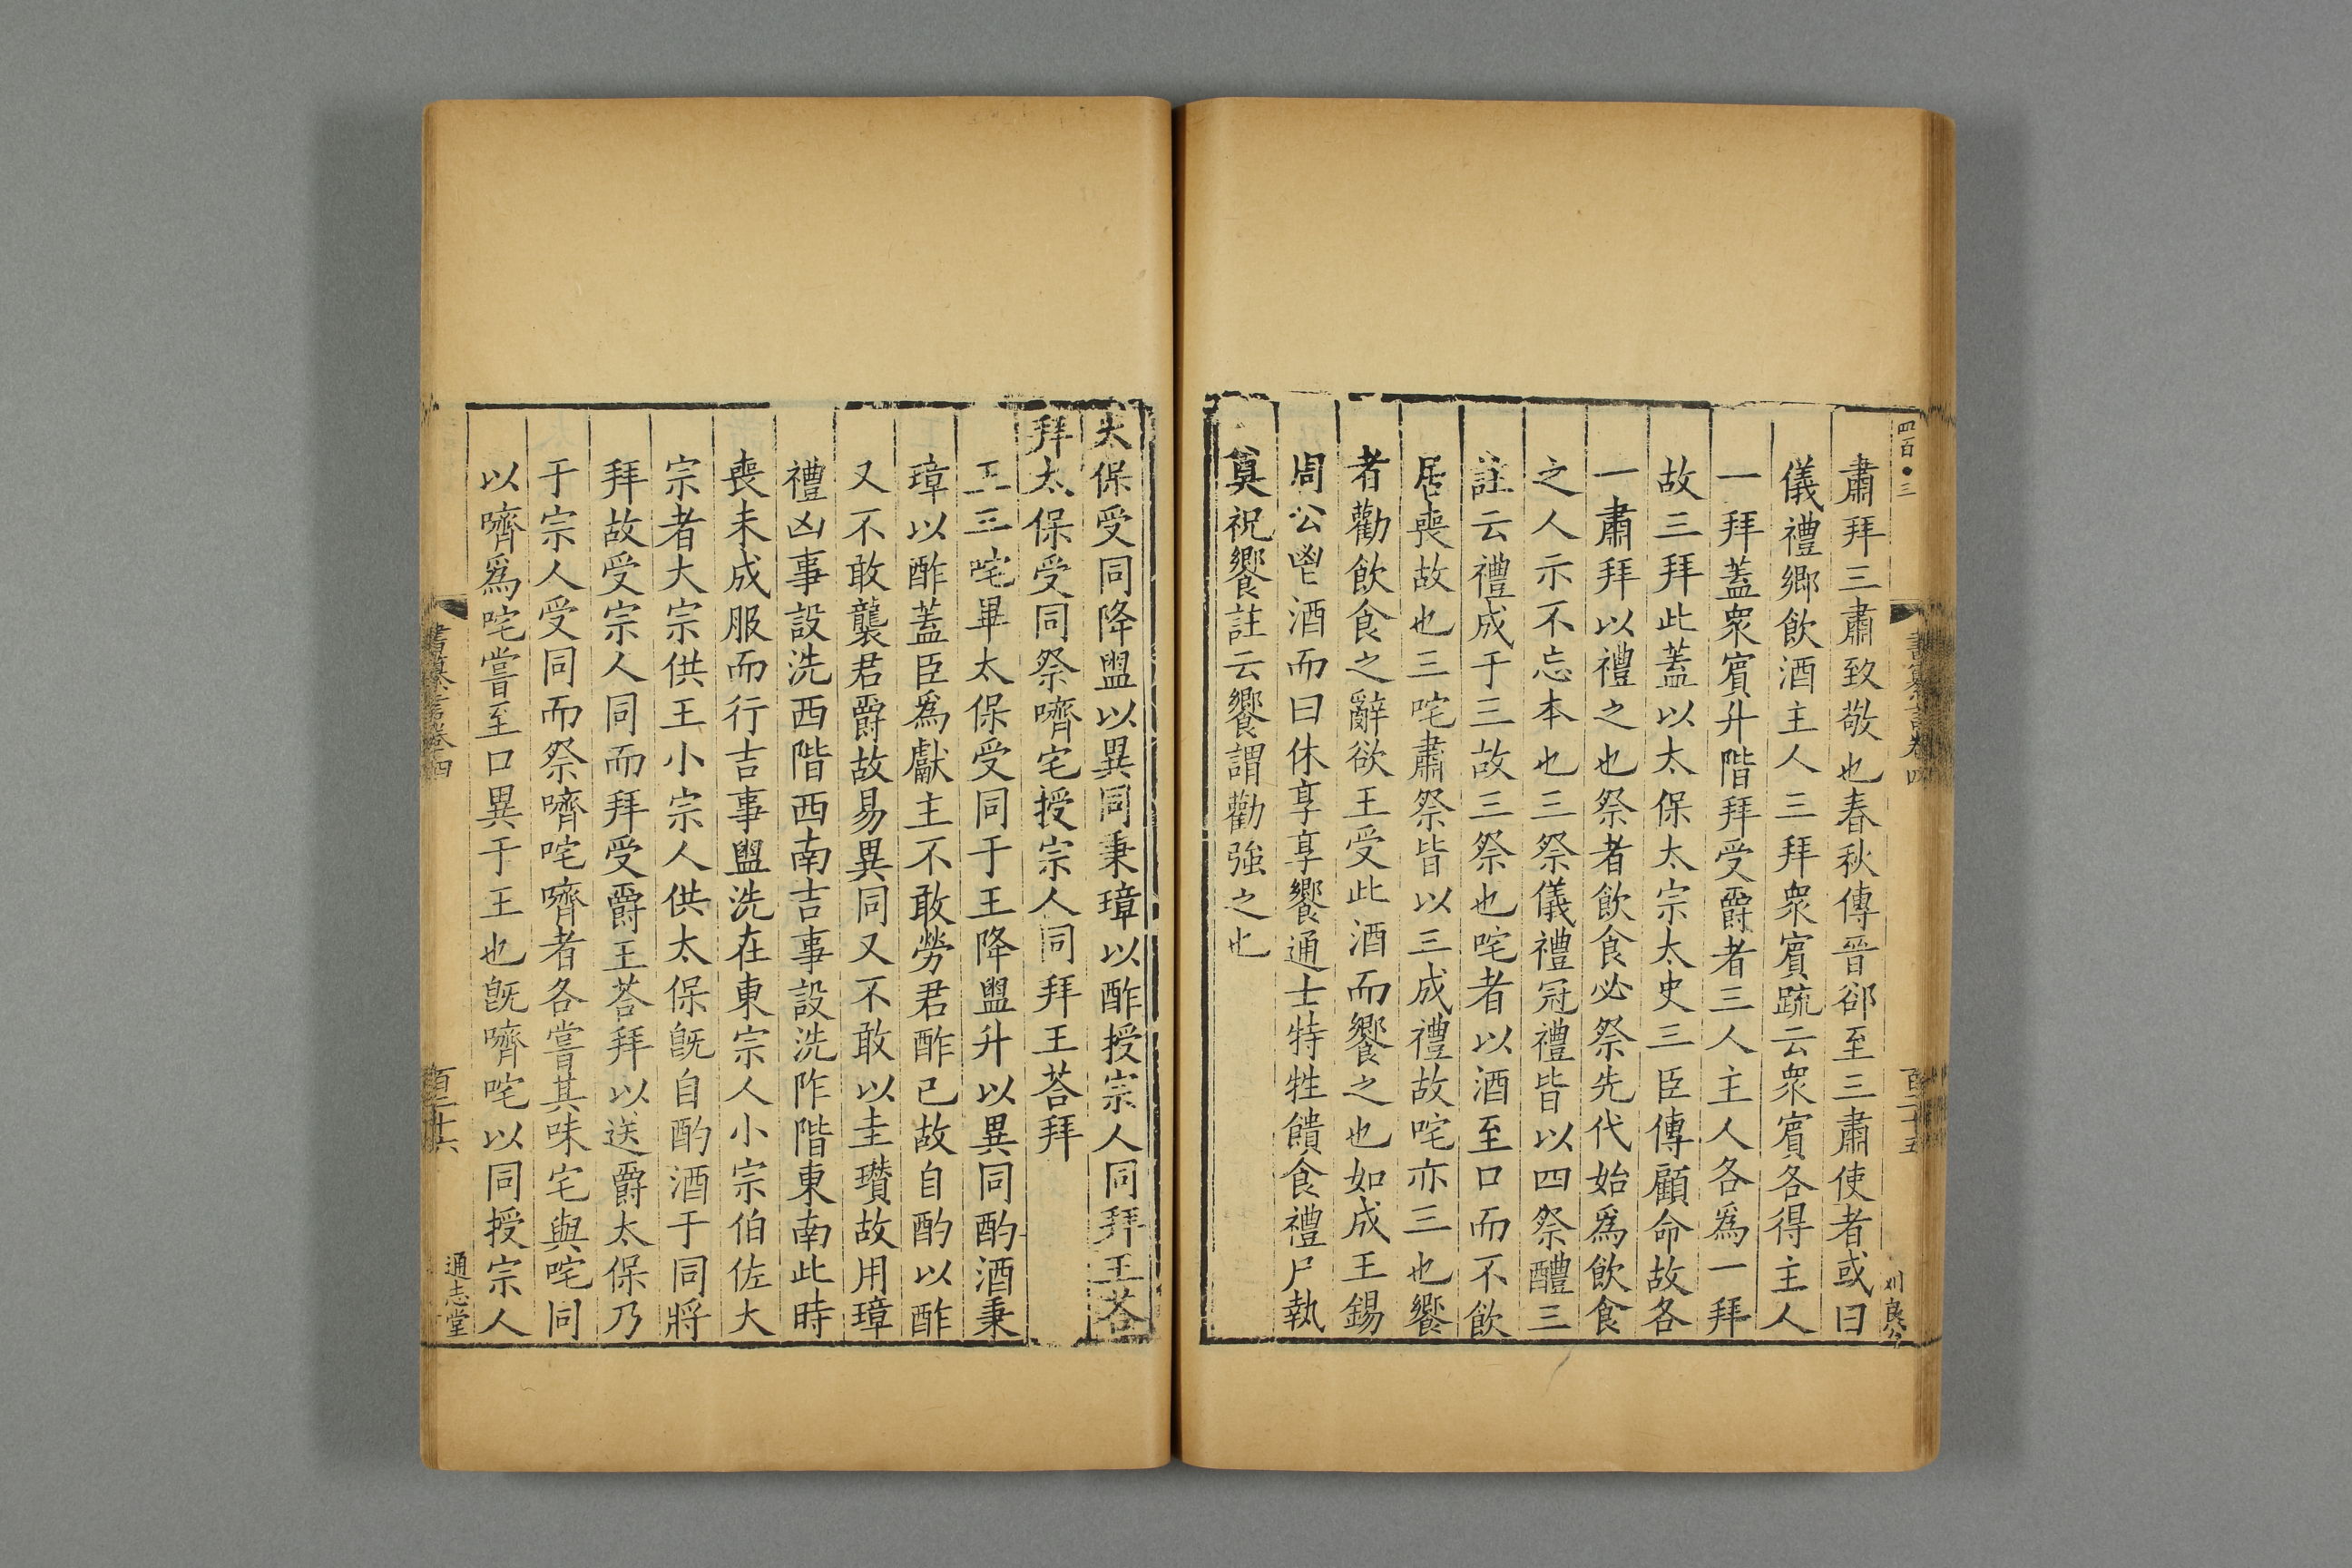 四百●三
書纂言卷四
百二十五
刘良公
肅拜三肅致敬也春秋傳晉郤至三肅使者或曰
儀禮鄉飲酒主人三拜衆賓疏云衆賓各得主人
一拜蓋衆賓升階拜受爵者三人主人各爲一拜
故三拜此蓋以太保太宗太史三臣傳顧命故各
一肅拜以禮之也祭者飲食必祭先代始爲飲食
之人示不忘本也三祭儀禮冠禮皆以四祭醴三
註云禮成于三故三祭也咤者以酒至口而不飲
居喪故也三咤肅祭皆以三成禮故咤亦三也饗
者勸飲食之辭欲王受此酒而饗之也如成王錫
周公鬯酒而曰休享享饗通士特牲饋食禮尸執
奠祝饗註云饗謂勸強之也
太保受同降盥以異同秉璋以酢授宗人同拜王荅
拜太保受同祭嚌宅授宗人同拜王荅拜
王三咤畢太保受同于王降盥升以異同酌酒秉
璋以酢蓋臣爲獻主不敢勞君酢已故自酌以酢
又不敢襲君爵故易異同又不敢以圭瓚故用璋
禮凶事設洗西階西南吉事設洗阼階東南此時
喪未成服而行吉事盥洗在東宗人小宗伯佐大
宗者大宗供王小宗人供太保旣自酌酒于同將
拜故受宗人同而拜受爵王荅拜以送爵太保乃
于宗人受同而祭嚌咤嚌者各嘗其味宅與咤同
以嚌爲咤嘗至口異于王也旣嚌咤以同授宗人
書纂言卷四
百二十六
通志堂